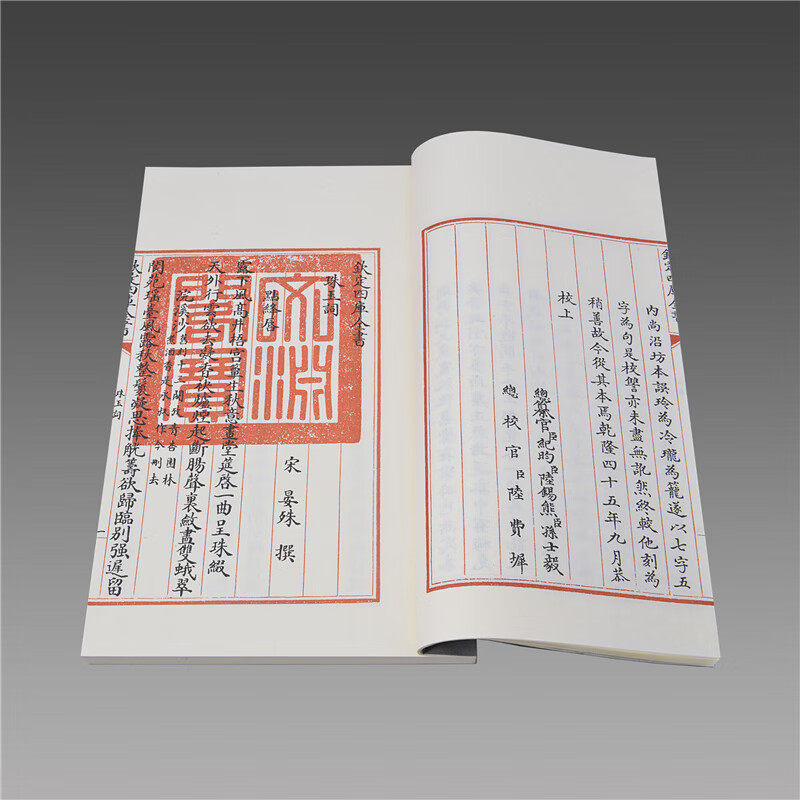 欽定四庫全書
內尚沿坊本誤玲為冷瓏為籠遂以七字五
字為句是校讐亦未盡無訛然終較他刻為
稍善故今從其本焉乾隆四十五年九月恭
校上
總纂官臣紀昀臣陸錫熊臣孫士毅
總校官臣陸費墀
欽定四庫全書
珠玉詞
宋 晏殊 撰
點絳唇
露下風高井梧宮簟生秋意畫堂筵啓一曲呈珠綴
天外行雲欲去凝香袂爐煙起斷腸聲裏斂盡雙蛾翠
浣溪沙 舊刻十三闋攷青杏園林
煮酒香是永叔作今刪去
閬苑瑤臺風露秋整鬟凝思捧觥籌欲歸臨別强遲留
欽定四庫全書
珠玉詞
文淵閣寶